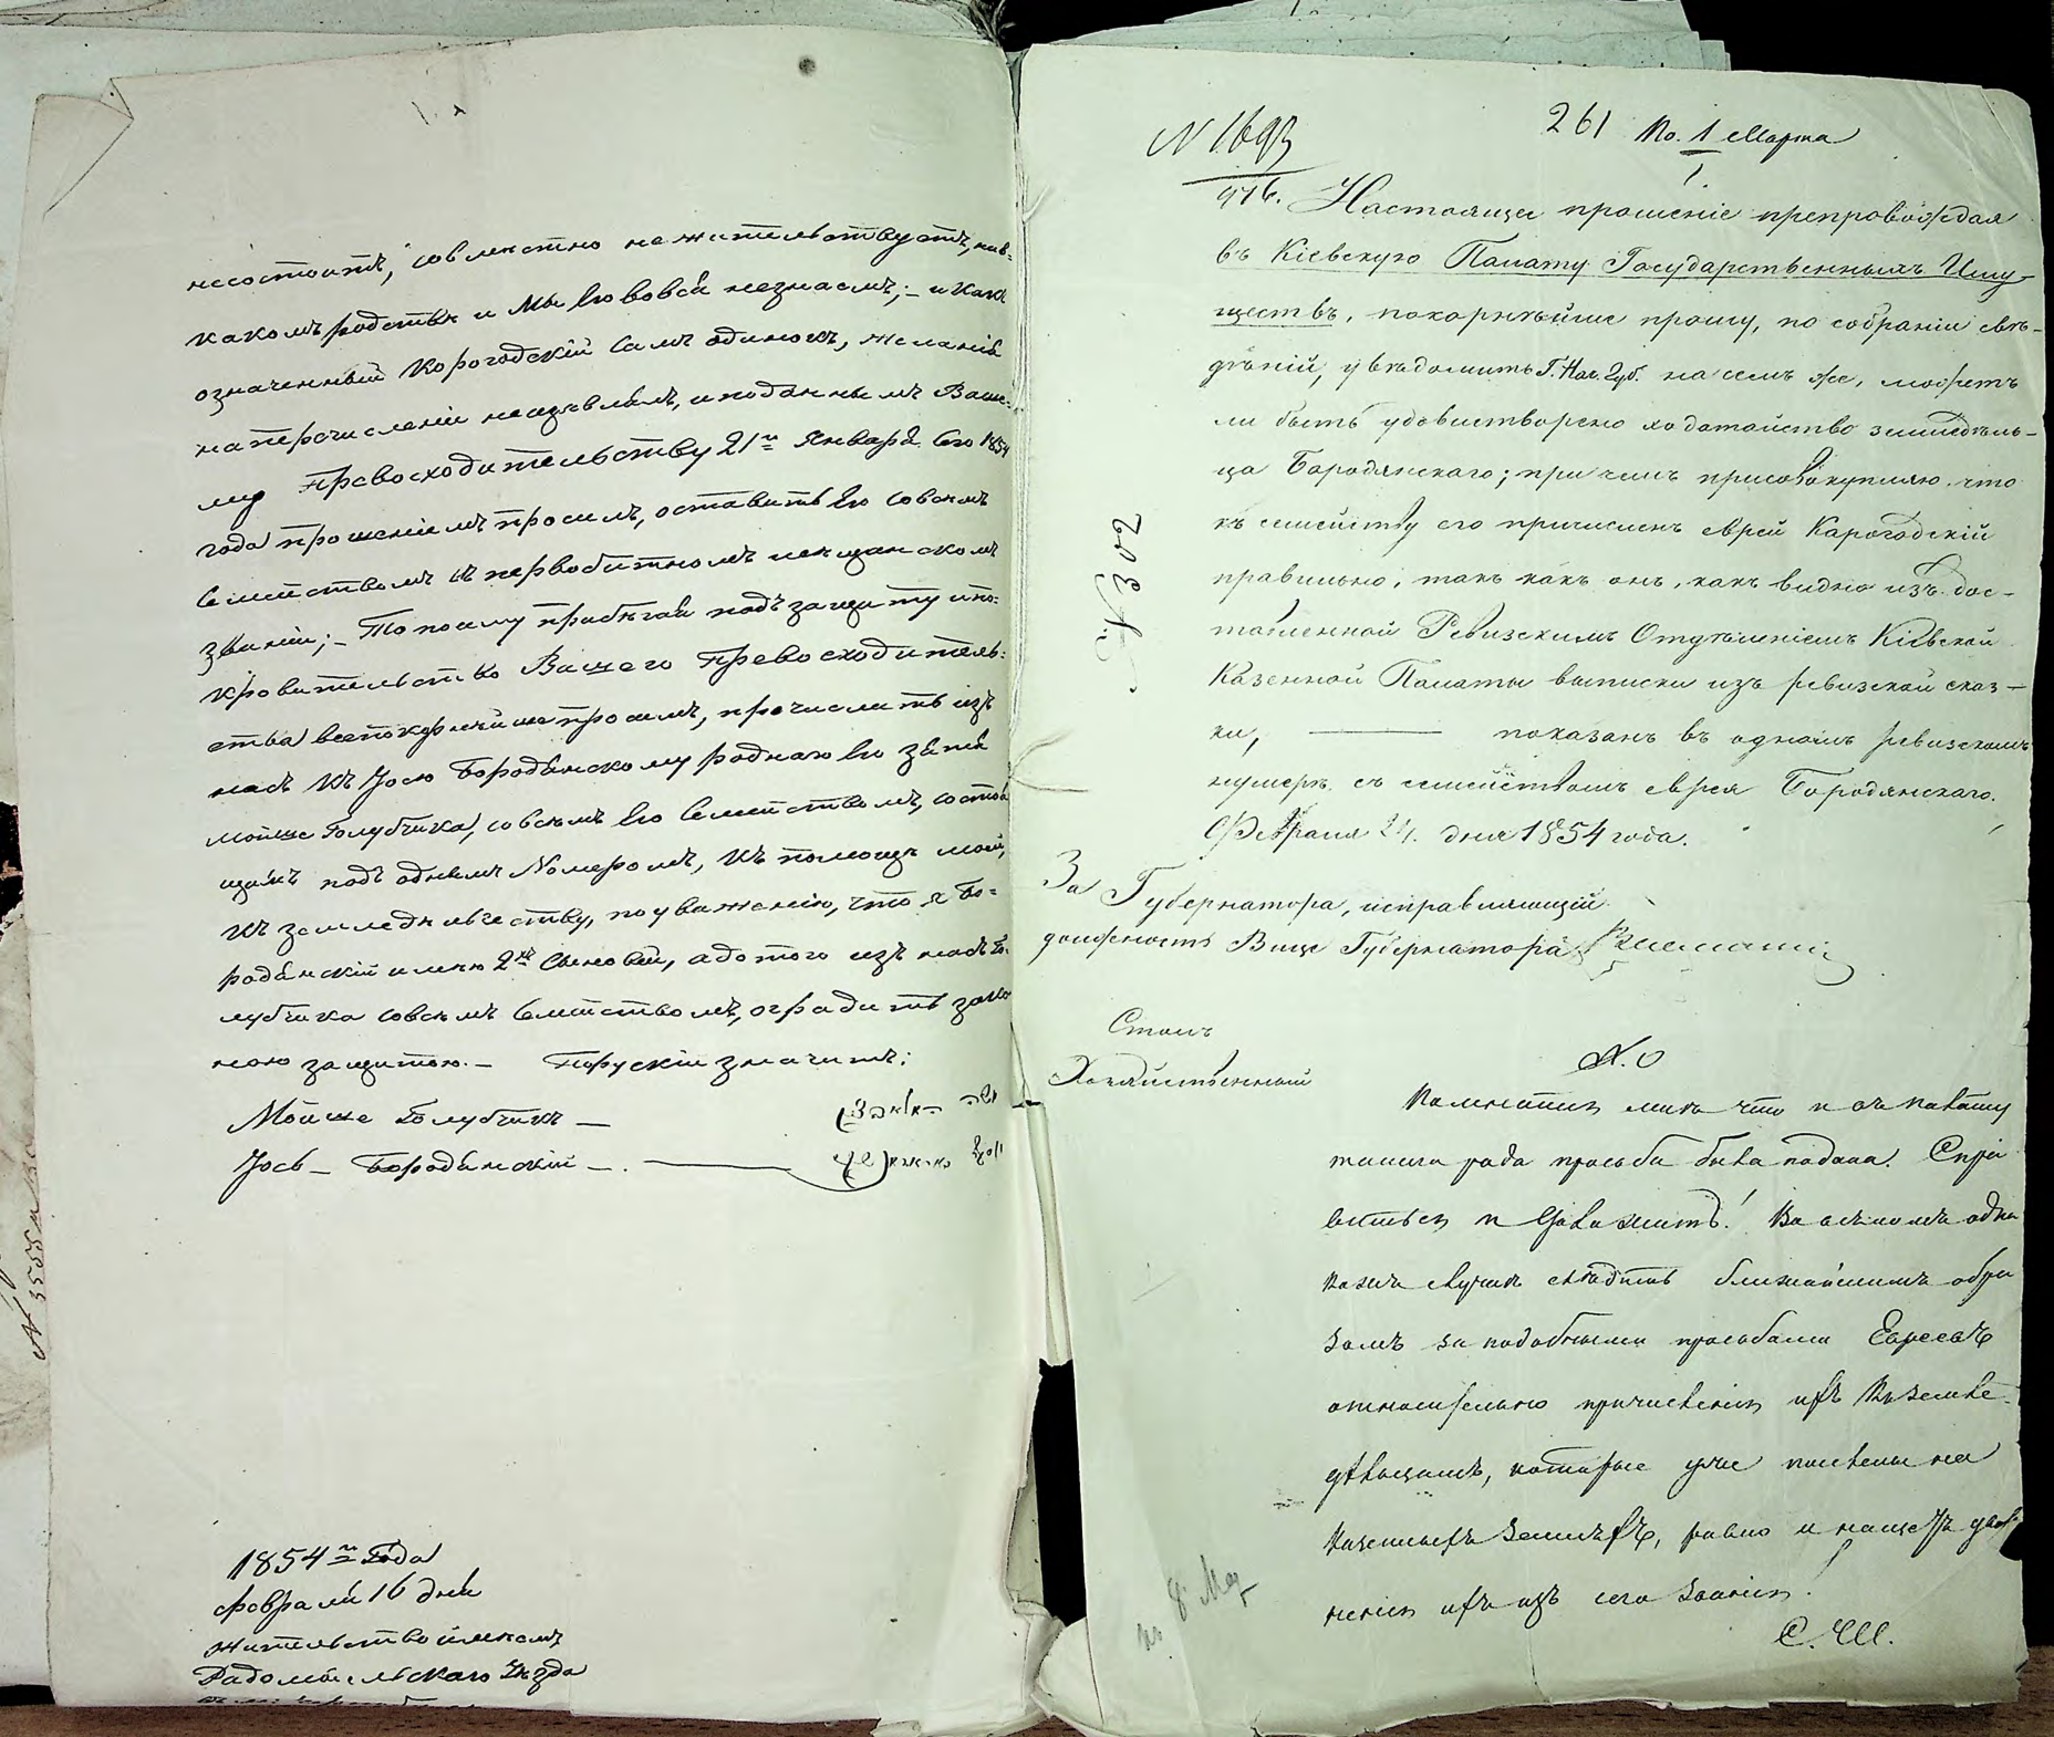 несостоитъ, совместно не жительствуетъ, нив-
какомъ родстве и мы Его вовся незнаемъ; - и какъ
означенный Корогодскій самъ одинокъ, желанія
на перечисленіи неизъявляетъ, и поданнымъ Ваше-
му Превосходительству 21го Января сего 1854
года прошеніемъ просилъ, оставить Его совсемъ
Семействомъ въ первобитномъ мещанскомъ
званіи; - То посему прибегая подъ защиту и по-
кровительство Вашего Превосходитель-
ства всепокорнейше просимъ, причислить изъ
насъ къ Іосю Бородянскому роднаго Его зятя
Мойше Голубчика, совсемъ Его Семействомъ, состоя
щимъ подъ однимъ Номеромъ, къ помощъ моей,
къ земледельчеству, по уваженію, что я Бо-
родянскій имею 2хъ Сыновей, а до того изъ насъ Го-
лубчика совсемъ Семействомъ, оградить зако
ною защитою. - Порускіи значитъ:
Мойше Голубчикъ -
משה האלאבציק
Іось - Бородянскій -.
1854го Года
февраля 16 дня
жительство имеемъ
Радомысльского Уезда
N 3555
261 По. 1 Марта
N 1693
976. Настоящее прошеніе препровождая
въ Кіевскую Палату Государственныхъ Иму-
ществъ, покорнѣйше прошу, по собраніи свѣ-
дѣній, увѣдомить Г. Нач. Губ. на семъ же, можетъ
ли быть удовлетворено ходатайство земледѣль-
ца Бородянскаго; при чемъ присовокупляю, что
къ семейству его причисленъ еврей Карогодскій
правильно, такъ какъ онъ, какъ видно изъ дос-
тавленной Ревизскимъ Отдѣленіемъ Кіевской
Казенной Палаты выписки изъ ревизской сказ-
ки, показанъ въ одномъ ревизскомъ
нумерѣ съ семействомъ еврея Бородянскаго.
Февраля 24. дня 1854 года.
N 302
За Губернатора, исправляющій
должность Вице Губернатора
Столъ
Хозяйственный
Х. О
Помнится мнѣ что и въ палату
такого рода просьба была подана. Спра
виться и доложить! Во всякомъ одна
кожъ случаѣ слѣдить ближайшимъ обра
зомъ за подобными просьбами Евреевъ
относительно причисленія ихъ къ земле-
дѣльцамъ, которые уже поселены на
казенныхъ земляхъ, равно и на счетъ уволь
ненія ихъ изъ сего званія!
С. Ш.
8 Мар